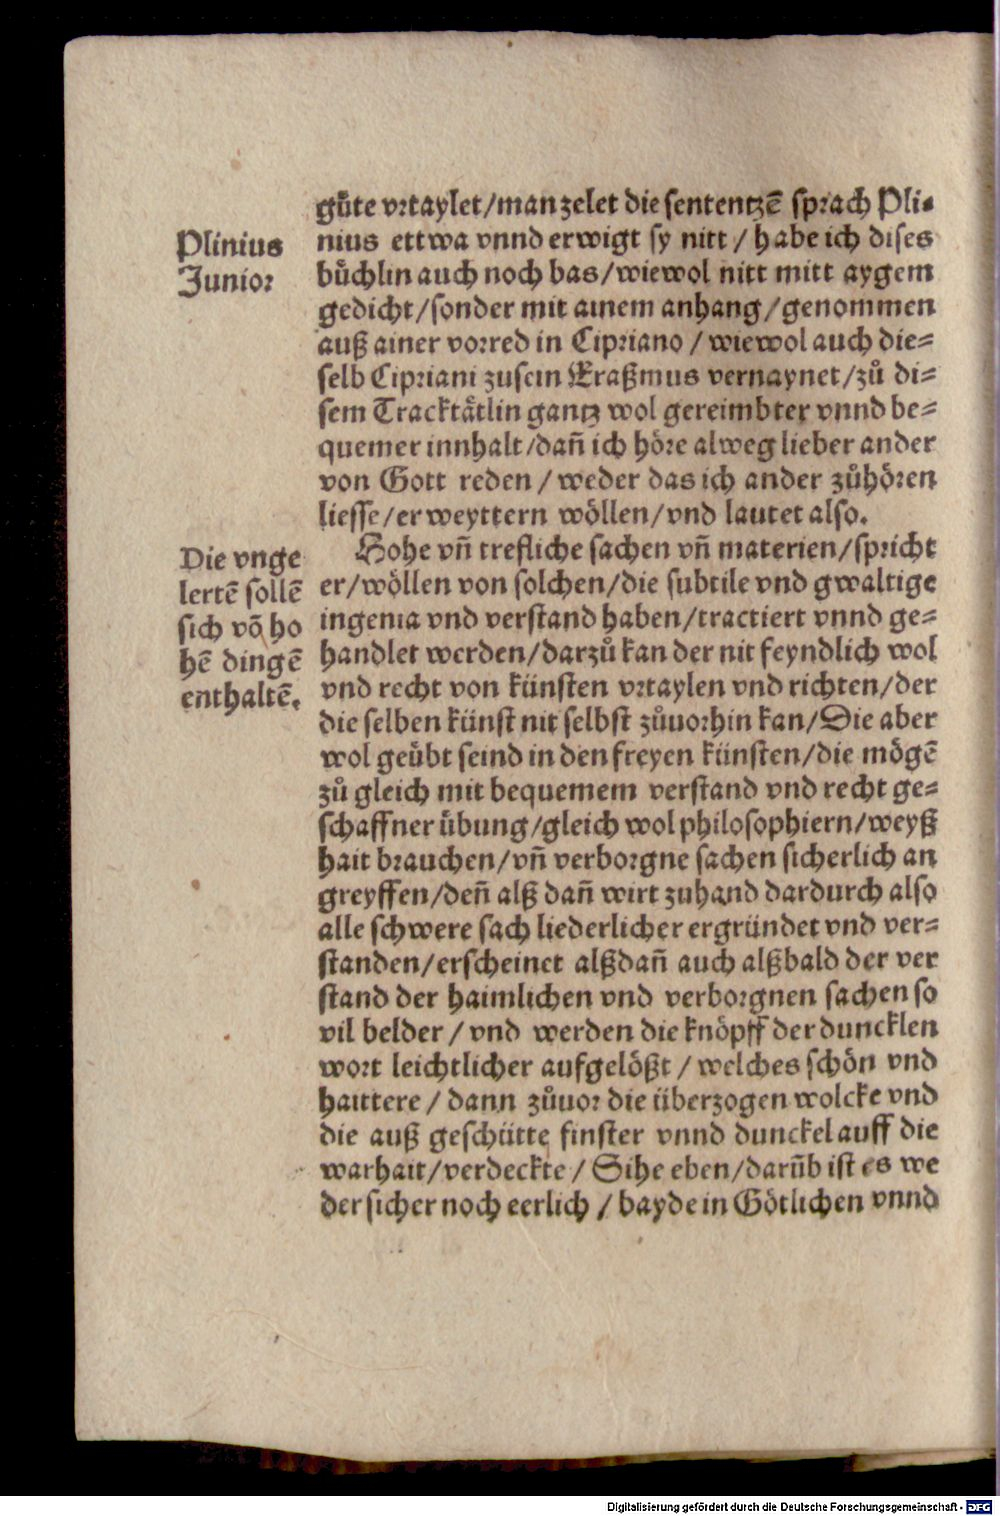 gu̇te vrtaylet/man zelet die sententzē sprach Pli-
nius ettwa vnnd erwigt sy nitt / habe ich dises
bu̇chlin auch noch bas/wiewol nitt mitt aygem
gedicht/sonder mit ainem anhang/genommen
auß ainer vorred in Cipriano / wiewol auch die=
selb Cipriani zusein Eraßmus vernaynet/zů di=
sem Tracktätlin gantz wol gereimbter vnnd be=
quemer innhalt/dañ ich höre alweg lieber ander
von Gott reden / weder das ich ander zůhören
liesse/erweyttern wöllen/vnd lautet also.
Plinius
Junior
Hohe vñ trefliche sachen vñ materien/spricht
er/wöllen von solchen/die subtile vnd gwaltige
ingenia vnd verstand haben/tractiert vnnd ge=
handlet werden/darzů kan der nit feyndlich wol
vnd recht von künsten vrtaylen vnd richten/der
die selben künst nit selbst zůuorhin kan/Die aber
wol geübt seind in den freyen künsten/die mögē
zů gleich mit bequemem verstand vnd recht ge=
schaffner übung/gleich wol philosophiern/weyß
hait brauchen/vñ verborgne sachen sicherlich an
greyffen/deñ alß dañ wirt zuhand dardurch also
alle schwere sach liederlicher ergründet vnd ver=
standen/erscheinet alßdañ auch alßbald der ver
stand der haimlichen vnd verborgnen sachen so
vil belder / vnd werden die knöpff der duncklen
wort leichtlicher aufgelößt / welches schön vnd
haittere / dann zůuor die überzogen wolcke vnd
die auß geschütte finster vnnd dunckel auff die
warhait/verdeckte / Sihe eben/darüb ist es we
der sicher noch eerlich / bayde in Götlichen vnnd
Die vnge
lertē sollē
sich võ ho
hē dingē
enthaltē.
Digitalisierung gefördert durch die Deutsche Forschungsgemeinschaft - DFG